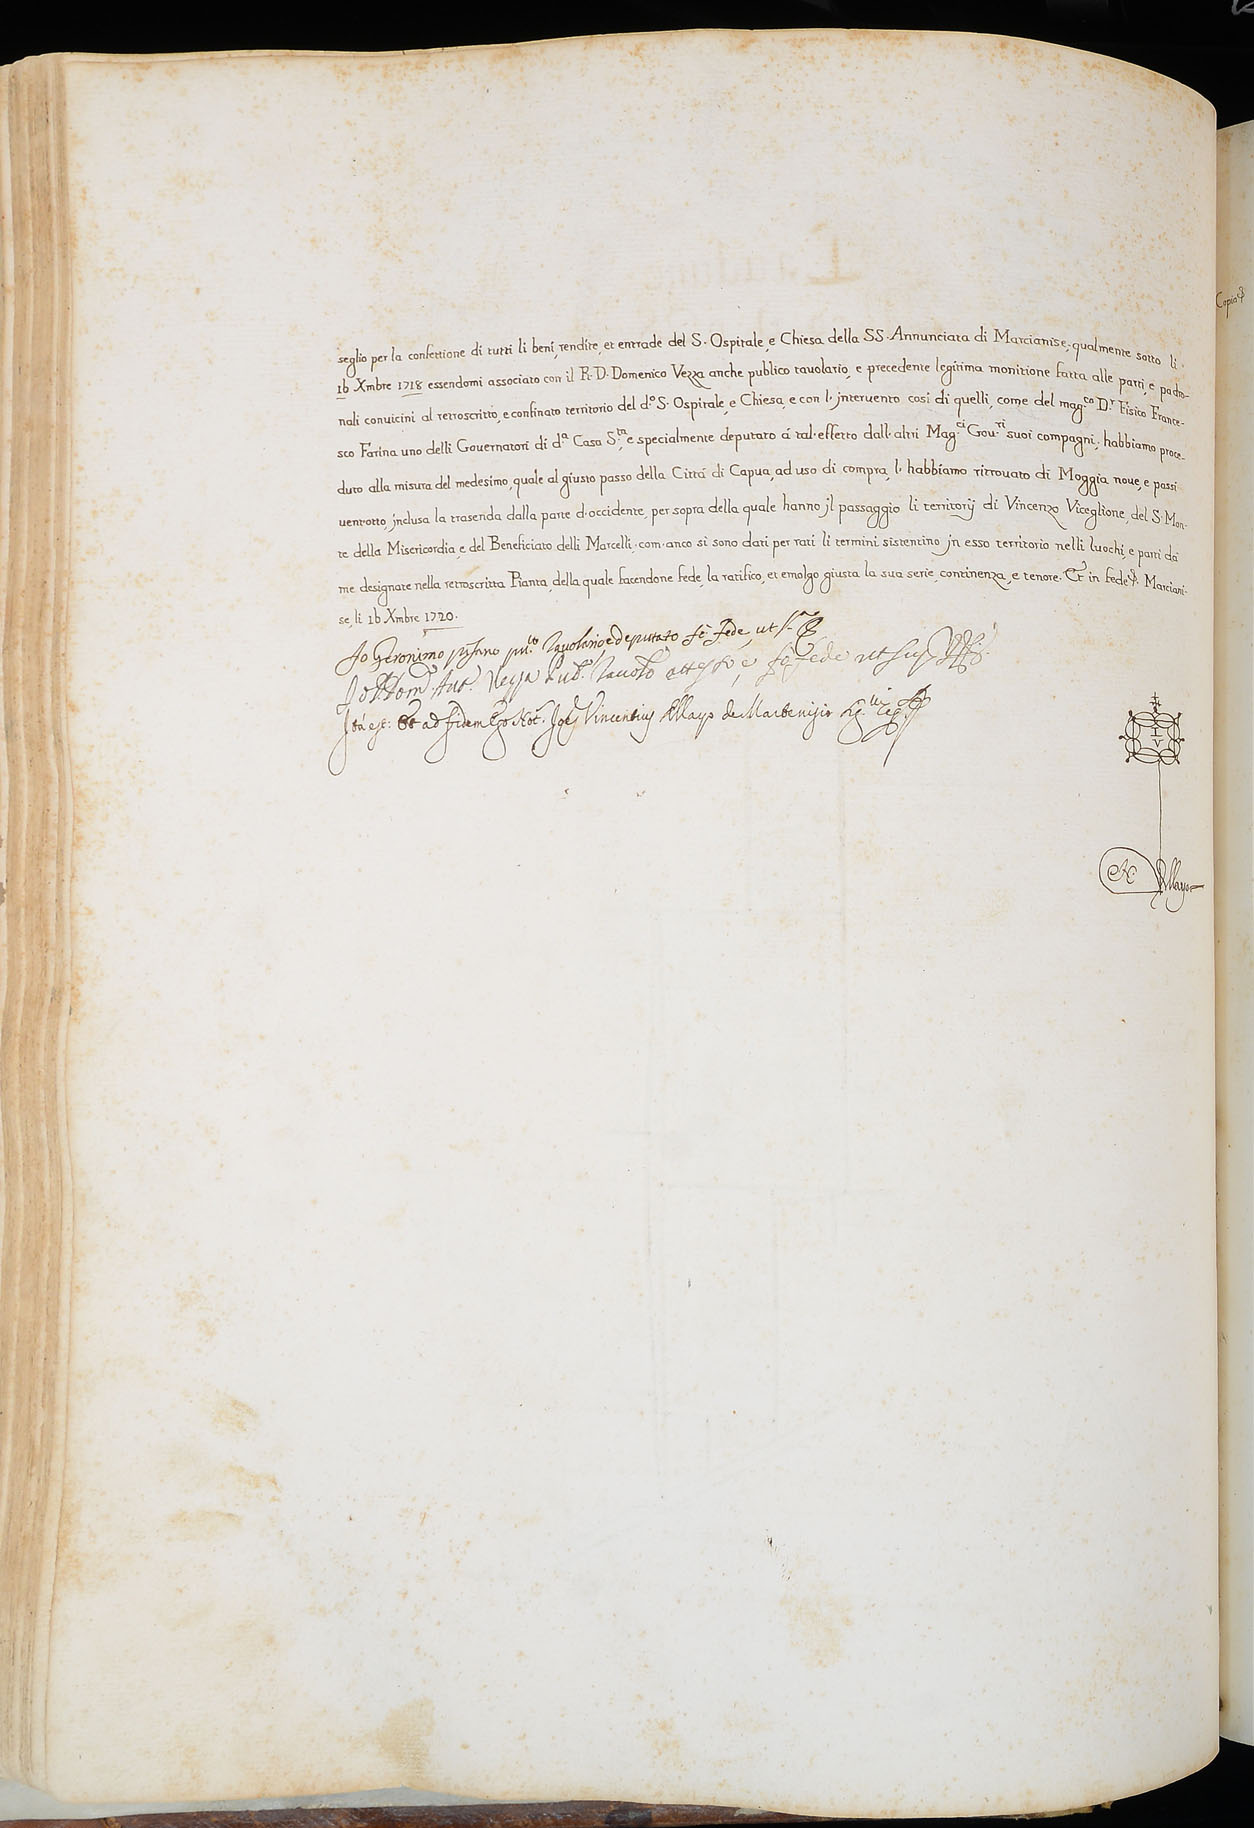 seglio per la confettione di tutti li beni, rendite, et entrade del S. Ospitale, e Chiesa della SS. Annunciata di Marcianise, qualmente sotto li
16 Xmbre 1718 essendomi associato con il R. D. Domenico Vezza anche publico tavolario, e precedente legitima monitione fatta alle parti, e padro-
nali convicini al retroscritto, e confinato territorio del d.º S. Ospitale, e Chiesa, e con l'jntervento cosi di quelli, come del mag.co D.r Fisico France-
sco Farina uno delli Governatori di d.ª Casa S.ta, e specialmente deputato á tal'effetto dall'altri Mag.ci Gov.ri suoi compagni, habbiamo proce-
duto alla misura del medesimo, quale al giusto passo della Cittá di Capua, ad uso di compra, l'habbiamo ritrovato di Moggia nove, e passi
vent'otto, jnclusa la trasenda dalla parte d'occidente, per sopra della quale hanno jl passaggio li territorij di Vincenzo Viceglione, del S. Mon-
te della Misericordia, e del Beneficiato delli Marcelli, com'anco si sono dati per rati li termini sistentino jn esso territorio nelli luochi, e parti da
me designate nella retroscritta Pianta, della quale facendone fede, la ratifico, et emolgo giusta la sua serie, continenza, e tenore. Et in fede &. Marciani-
se, li 16 Xmbre 1720.
Io Geronimo pu.co Tavolario, e deputato fò fede, ut s.ª
Io D. Dom. Ant. Vezza Pub. Tavol.º attesto, e fo fede ut sup.
Ita est: Et ad fidem Ego Not. Joes Vincentius Allayo de Marcenisio
I
V
Allayo
Copia